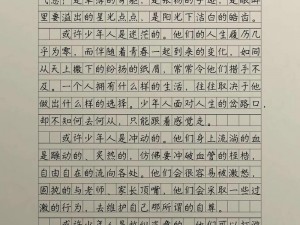 里要溢出的星光点点，是阳光下洁白的皓齿。
或许少年人是迷茫的。他们的人生履历几
乎为零，而伴随着青春一起到来的变化，如同
从天上撒下的纷扬的纸屑，常常令他们措手不
及。一个人拥有什么样的生活，往往取决于他
做出什么样的选择。少年人面对人生的岔路口，
却不知何去何从，只能跟着感觉走。
或许少年人是冲动的。他们身上流淌的血
是躁动的、炙热的，仿佛要冲破血管的桎梏，
自由自在的流向各处。他们会很容易被激怒，
固执的与老师，家长顶嘴，他们会采取一些过
激的行为，去维护自己那所谓的自尊。
或许少年人是